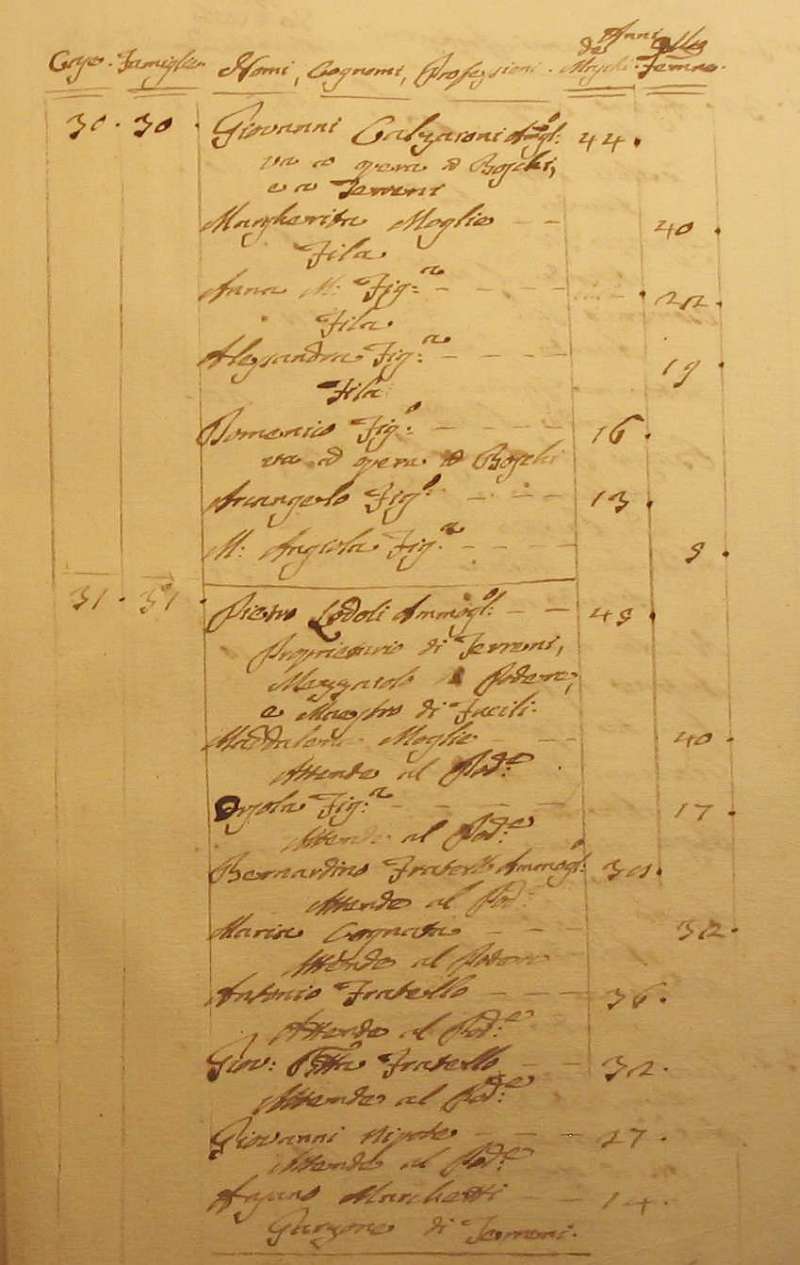 Anni
Case. Famiglie. Nomi, Cognomi, Professioni. de Maschi. delle Femine.
30. 30. Giovanni Calzaroni Amogl:º 44.
va a opera a Boschi,
e a Terreni
Margherita Moglie 40.
Fila
Anna M: Fig:ª 22.
Fila
Alessandra Fig:ª 19.
Fila
Domenico Fig:º 16.
va ad opera a Boschi
Arcangelo Fig:º 13.
M: Angiola Fig:ª 9.
31. 31. Pietro Lodoli Ammogl:º 49.
Proprietario di Terreni,
Mezzarolo a Podere,
e Maestro di Fucili.
Maddalena Moglie 40.
Attende al Pod:e
Orsola Fig:ª 17.
Attende al Pod:e
Bernardino Fratello Ammogl:º
Attende al Pod:e
Maria Cognata 32.
Attende al Podere
Antonio Fratello 36.
Attende al Pod:e
Giov: Btta Fratello 32.
Attende al Pod:e
Giovanni Nipote 27.
Attende al Pod:e
Marchetti 14.
Garzone di Terreni.